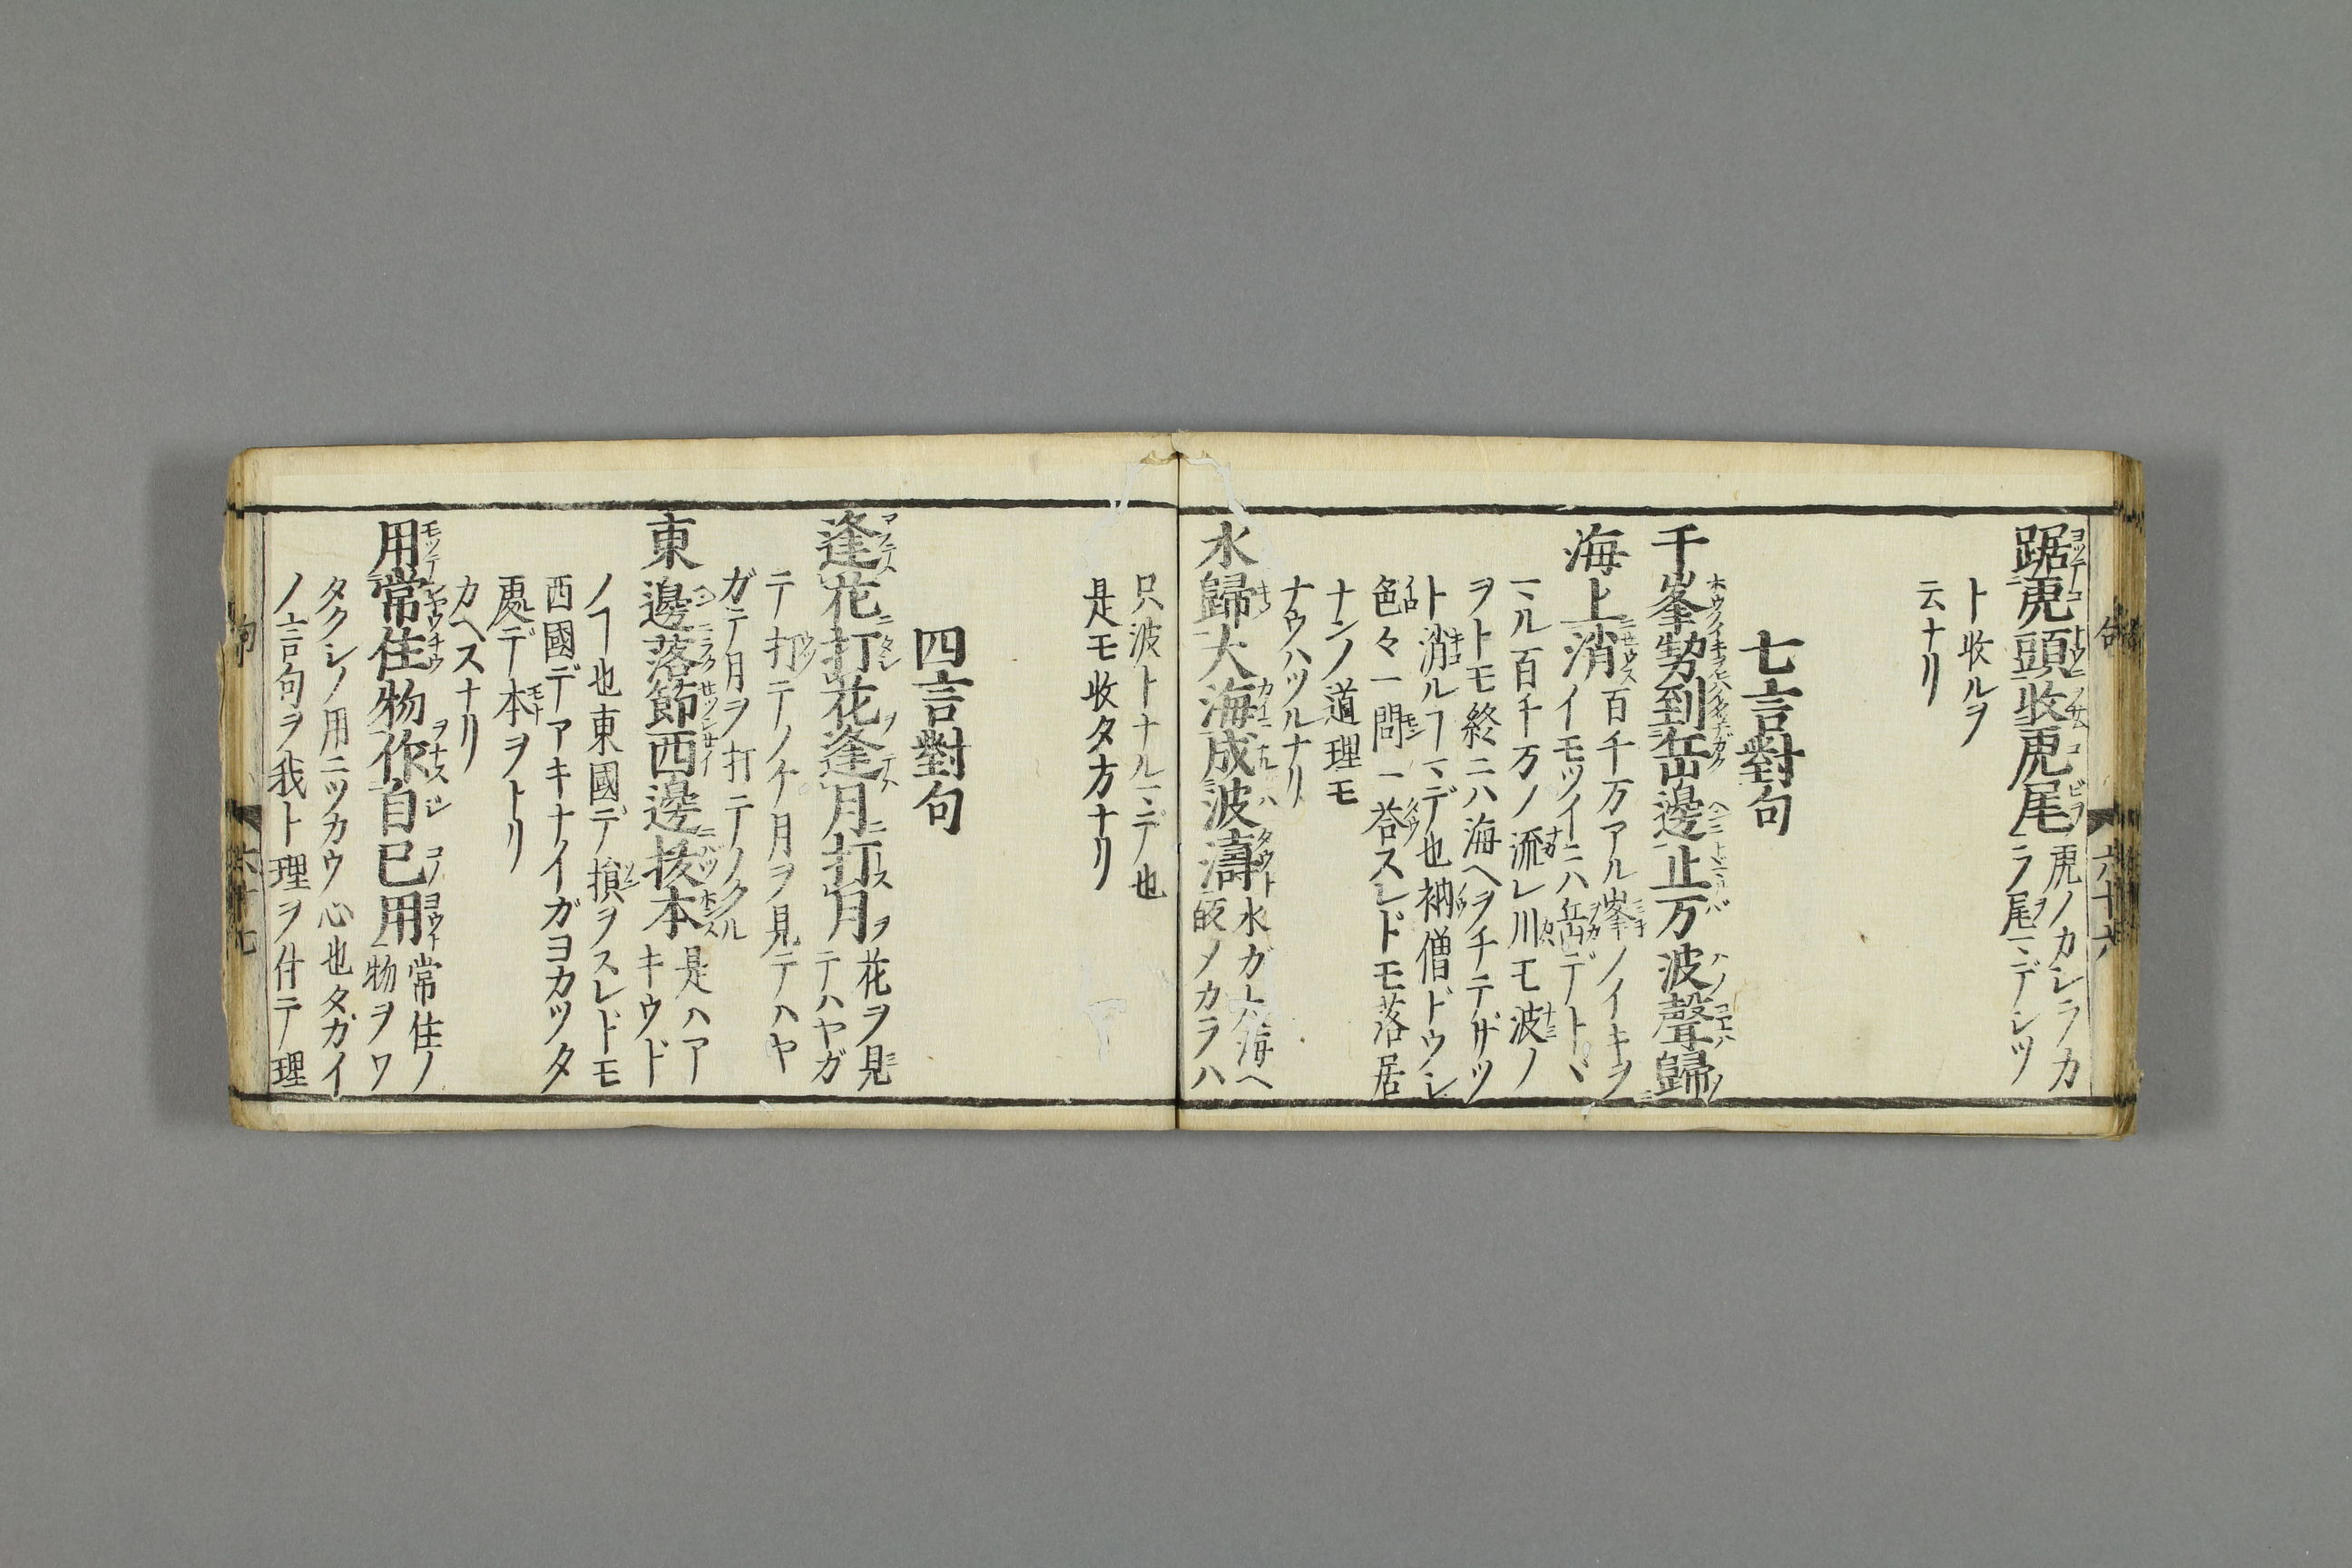 踞虎頭收虎尾 虎ノカシラカ
ラ尾マデシツ
ト收ルヲ
云ナリ
七言對句
千峯勢到岳邊止万波聲歸
海上消 百千万アル峯ノイキヲ
イモツイニハ岳デトヽ
マル百千万ノ流レ川モ波ノ
ヲトモ終ニハ海ヘヲチテザツ
ト消ルヿマデ也衲僧ドウシ
色々一問一荅スレドモ落居
ナンノ道理モ
ナウハツルナリ
水歸大海成波濤 水ガ大海ヘ
皈メカラハ
只波トナルマデ也
是モ收タ方ナリ
四言對句
逢花打花逢月打月 花ヲ見
テハヤガ
テ打テノケ月ヲ見テハヤ
ガテ月ヲ打テノクル
東邊落節西邊抜本 是ハア
キウド
ノヿ也東國デ損ヲスレドモ
西國デアキナイガヨカツタ
處デ本ヲトリ
カヘスナリ
用常住物作自己用 常住ノ
物ヲワ
タクシノ用ニツカウ心也タガイ
ノ言句ヲ我ト理ヲ付テ理
句 六十六
句 六十七